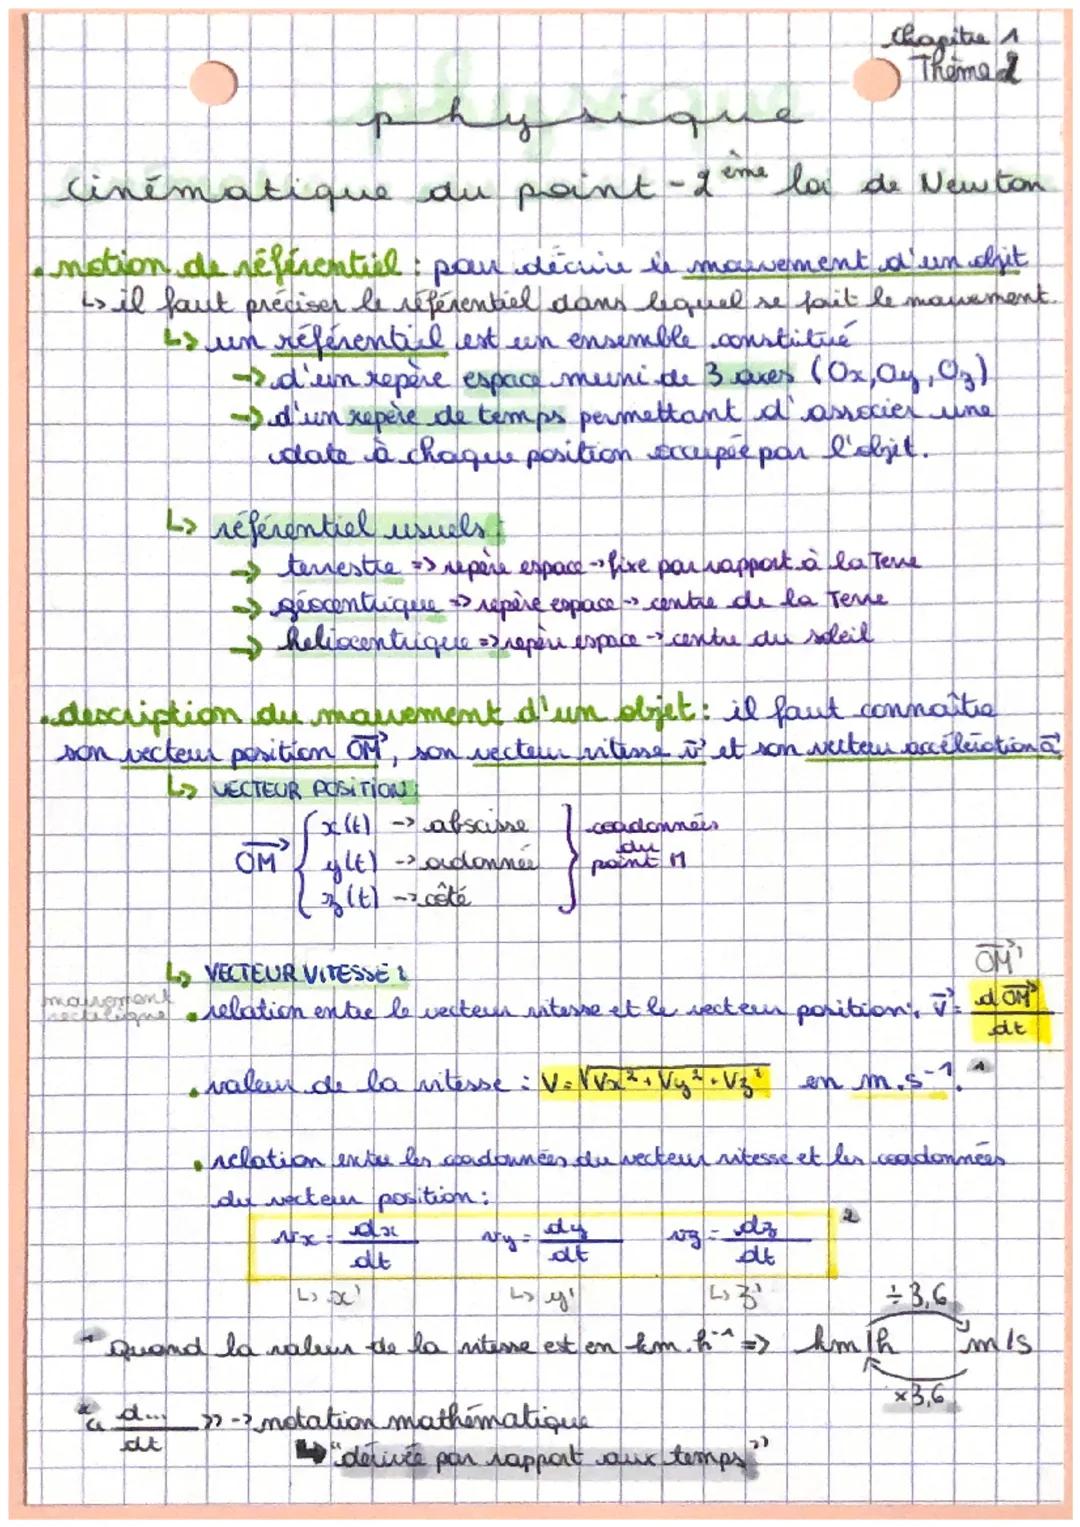 Chapitre 1
Thème 2
physique
Cinématique du point - 2ème loi de Newton
• notion de référentiel : pour décrire le mouvement d'un objet
↳ il faut préciser le référentiel dans lequel se fait le mouvement.
↳ un référentiel est un ensemble constitué
→ d'un repère espace muni de 3 axes (Ox, Oy, Oz)
→ d'un repère de temps permettant d'associer une
date à chaque position occupée par l'objet.
↳ référentiel usuels :
→ terrestre => repère espace → fixe par rapport à la Terre
→ géocentrique => repère espace → centre de la Terre
→ heliocentrique => repère espace → centre du soleil
• description du mouvement d'un objet : il faut connaître
son vecteur position OM⃗, son vecteur vitesse v⃗ et son vecteur accélération a⃗
↳ VECTEUR POSITION :
OM⃗ { x(t) → abscisse } coordonnées
y(t) → ordonnée du
z(t) → côté point M
↳ VECTEUR VITESSE :
OM⃗'
mouvement
rectiligne
• relation entre le vecteur vitesse et le vecteur position : v⃗ = dOM⃗/dt
• valeur de la vitesse : V = √Vx² + Vy² + Vz² en m.s⁻¹. ¹
• relation entre les coordonnées du vecteur vitesse et les coordonnées
du vecteur position :
vx = dx/dt vy = dy/dt vz = dz/dt ²
↳ x' ↳ y' ↳ z'
÷3,6
¹ Quand la valeur de la vitesse est en km.h⁻¹ => km/h m/s
×3,6
² « d.../dt » → notation mathématique
↳ "dérivée par rapport aux temps"